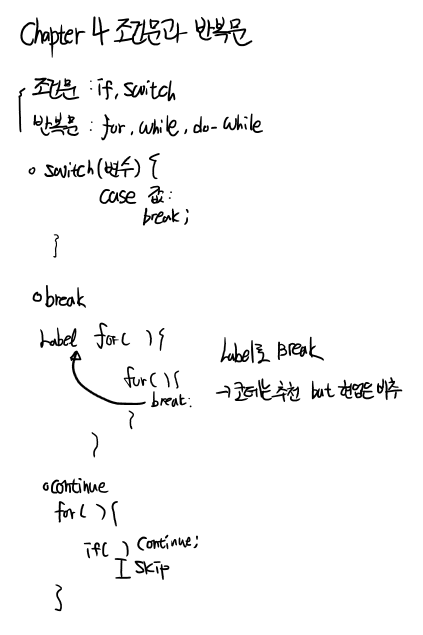 Chapter 4 조건문과 반복문
조건문 : if, switch
반복문 : for, while, do-while
switch(변수) {
case 값:
break;
}
break
Label for( ) {
for( ) {
break;
}
}
Label로 Break
→ 코테는 추천 but 현업은 비추
continue
for( ) {
if( ) continue;
skip
}